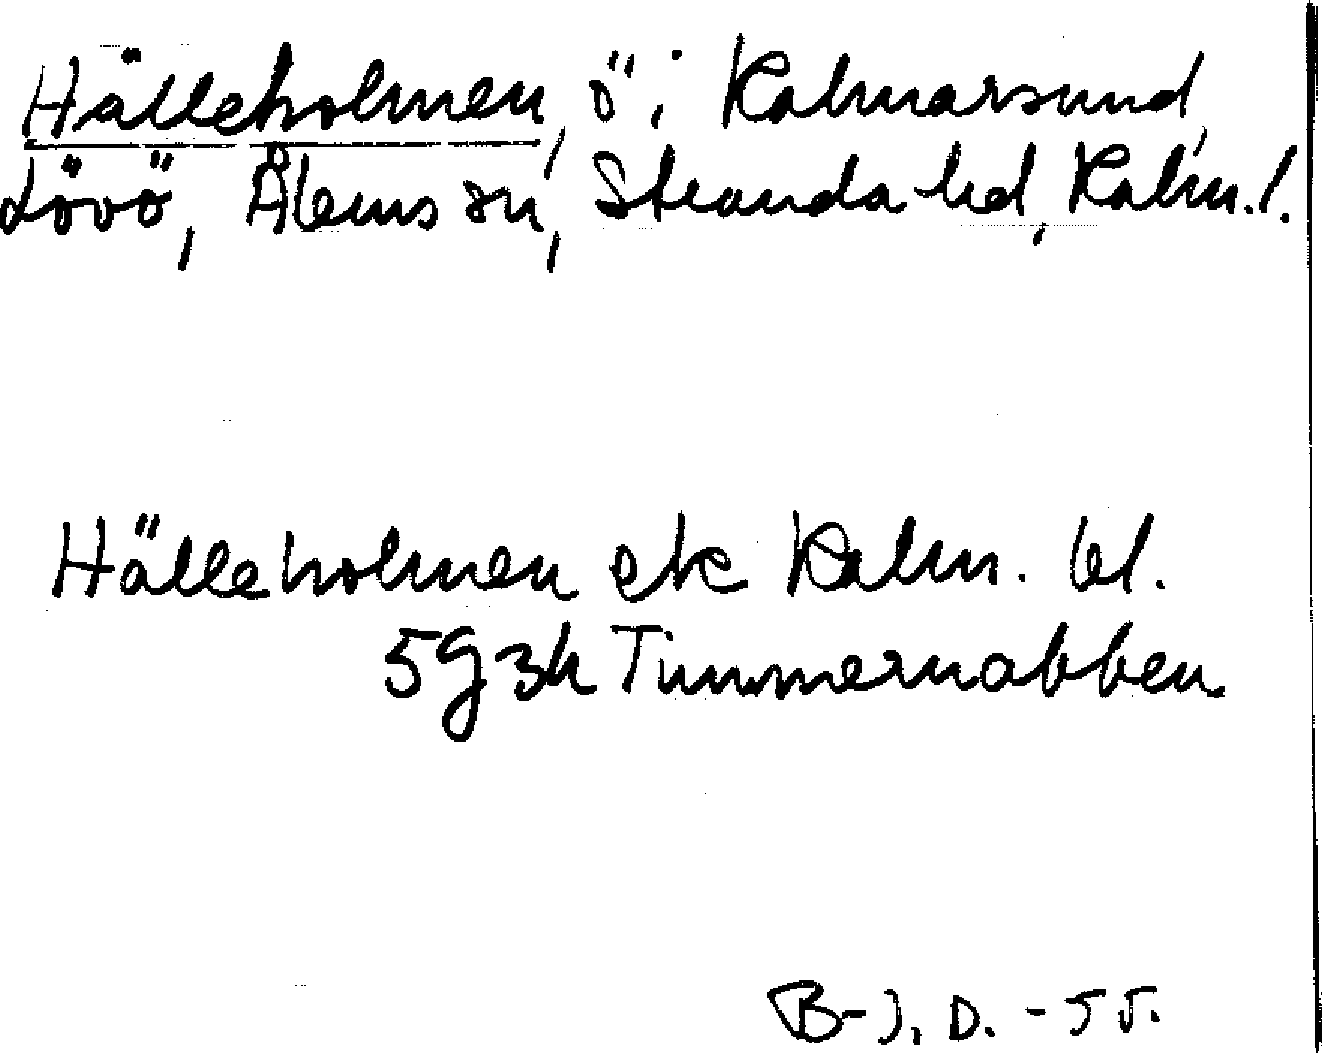 Hälleholmen, ö i Kalmarsund,
Lövö, Ålems sn, Stranda hd, Kalm. l.
Hälleholmen ek Kalm. bl.
5g3h Timmernabben
B-J, D. -55.